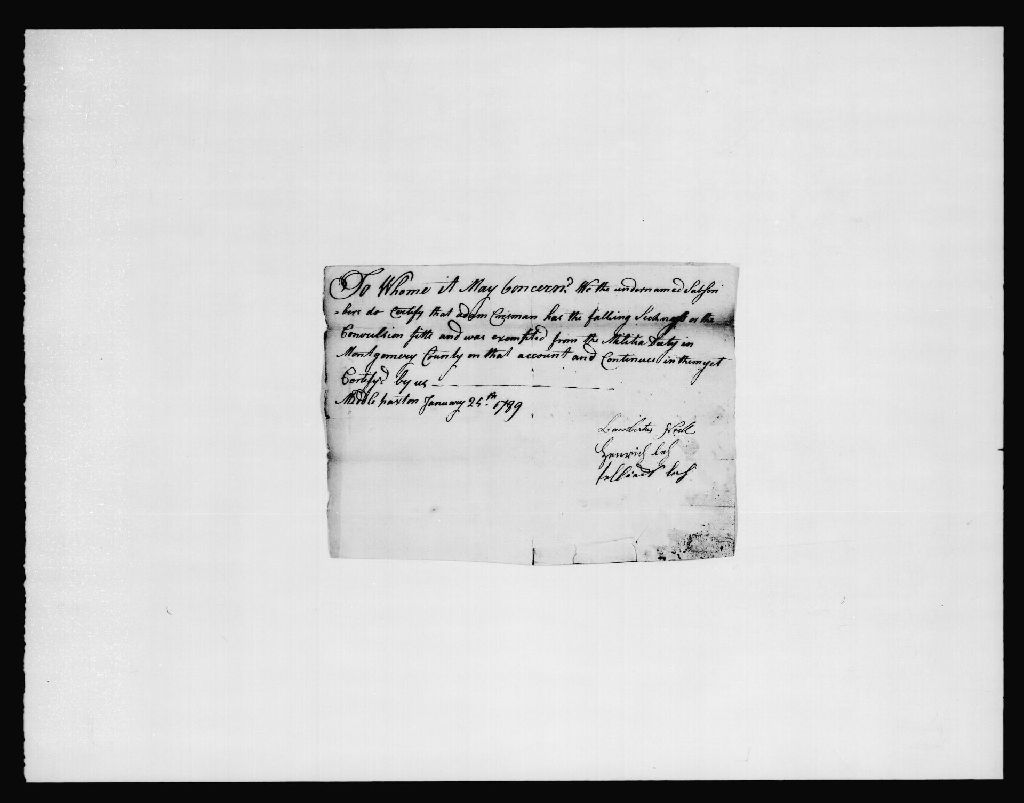 To Whome it May Concern. We the undernamed Subscri
-bers do Certify that adam has the falling Sickness or the
Convulsion fitts and was exempted from the Militia Duty in
Montgomery County on that account and Continues in them yet
Certify'd by us
Middle paxton January 25th 1789
Henrich